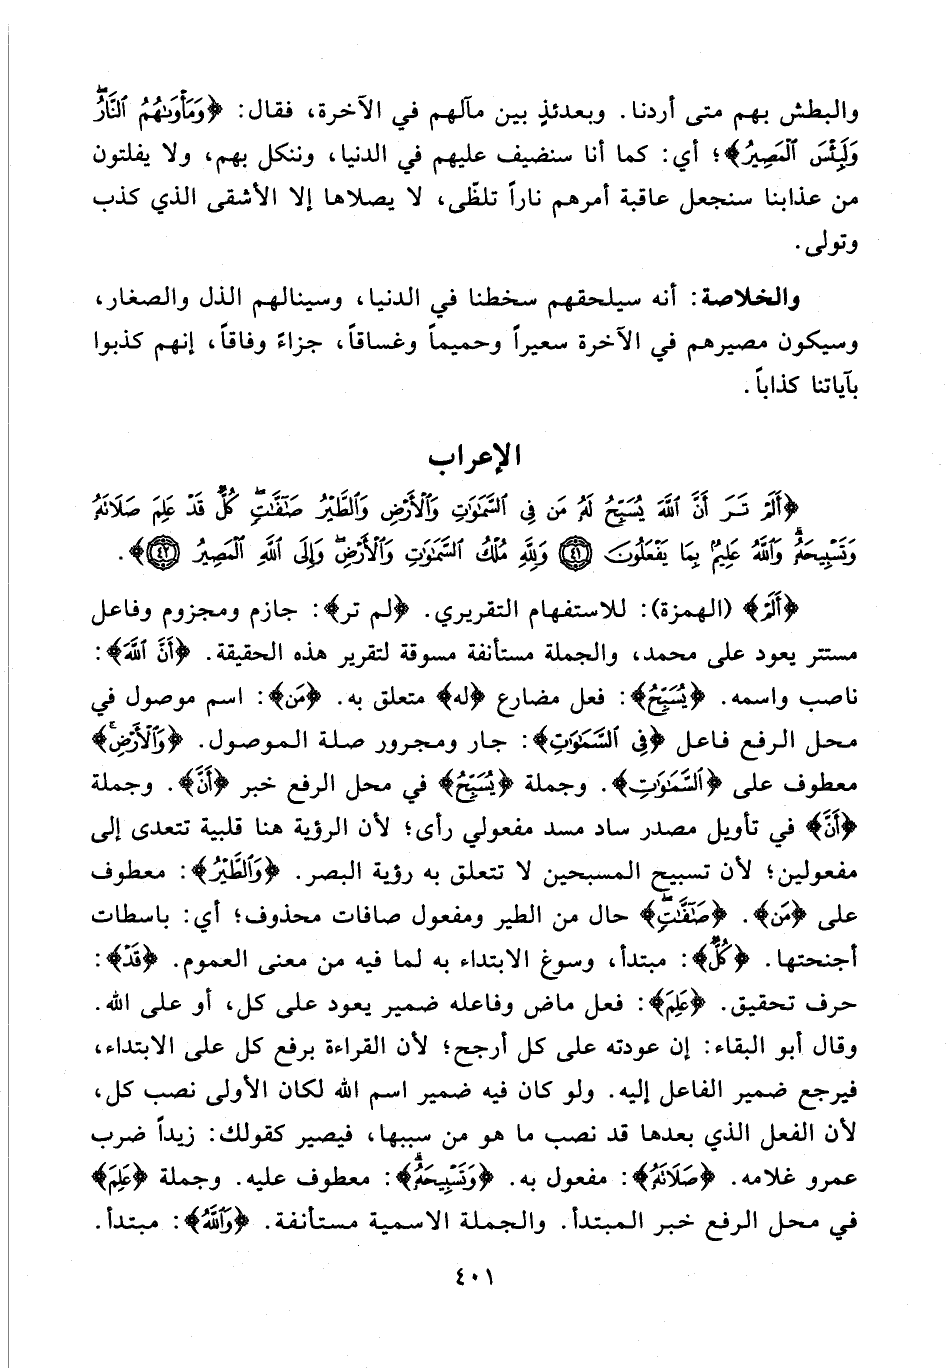 والبطش بهم متى أردنا. وبعدئذٍ بين مآلهم في الآخرة، فقال: ﴿وَمَأْوَىٰهُمُ ٱلنَّارُۖ
وَلَبِئْسَ ٱلْمَصِيرُ﴾؛ أي: كما أنا سنضيف عليهم في الدنيا، وننكل بهم، ولا يفلتون
من عذابنا سنجعل عاقبة أمرهم ناراً تلظّى، لا يصلاها إلا الأشقى الذي كذب
وتولى.
والخلاصة: أنه سيلحقهم سخطنا في الدنيا، وسينالهم الذل والصغار،
وسيكون مصيرهم في الآخرة سعيراً وحميماً وغساقاً، جزاءً وفاقاً، إنهم كذبوا
بآياتنا كذاباً.
الإعراب
﴿أَلَمْ تَرَ أَنَّ ٱللَّهَ يُسَبِّحُ لَهُۥ مَن فِى ٱلسَّمَٰوَٰتِ وَٱلْأَرْضِ وَٱلطَّيْرُ صَٰٓفَّٰتٍۖ كُلٌّ قَدْ عَلِمَ صَلَاتَهُۥ
وَتَسْبِيحَهُۥۗ وَٱللَّهُ عَلِيمٌۢ بِمَا يَفْعَلُونَ ٤١ وَلِلَّهِ مُلْكُ ٱلسَّمَٰوَٰتِ وَٱلْأَرْضِۖ وَإِلَى ٱللَّهِ ٱلْمَصِيرُ ٤٢﴾.
﴿أَلَمْ﴾ (الهمزة): للاستفهام التقريري. ﴿لم تر﴾: جازم ومجزوم وفاعل
مستتر يعود على محمد، والجملة مستأنفة مسوقة لتقرير هذه الحقيقة. ﴿أَنَّ ٱللَّهَ﴾:
ناصب واسمه. ﴿يُسَبِّحُ﴾: فعل مضارع ﴿له﴾ متعلق به. ﴿مَن﴾: اسم موصول في
محل الرفع فاعل ﴿فِى ٱلسَّمَٰوَٰتِ﴾: جار ومجرور صلة الموصول. ﴿وَٱلْأَرْضِۚ﴾
معطوف على ﴿ٱلسَّمَٰوَٰتِ﴾. وجملة ﴿يُسَبِّحُ﴾ في محل الرفع خبر ﴿أَنَّ﴾. وجملة
﴿أَنَّ﴾ في تأويل مصدر ساد مسد مفعولي رأى؛ لأن الرؤية هنا قلبية تتعدى إلى
مفعولين؛ لأن تسبيح المسبحين لا تتعلق به رؤية البصر. ﴿وَٱلطَّيْرُ﴾: معطوف
على ﴿مَن﴾. ﴿صَٰٓفَّٰتٍۖ﴾ حال من الطير ومفعول صافات محذوف؛ أي: باسطات
أجنحتها. ﴿كُلٌّ﴾: مبتدأ، وسوغ الابتداء به لما فيه من معنى العموم. ﴿قَدْ﴾:
حرف تحقيق. ﴿عَلِمَ﴾: فعل ماض وفاعله ضمير يعود على كل، أو على الله.
وقال أبو البقاء: إن عودته على كل أرجح؛ لأن القراءة برفع كل على الابتداء،
فيرجع ضمير الفاعل إليه. ولو كان فيه ضمير اسم الله لكان الأولى نصب كل،
لأن الفعل الذي بعدها قد نصب ما هو من سببها، فيصير كقولك: زيداً ضرب
عمرو غلامه. ﴿صَلَاتَهُۥ﴾: مفعول به. ﴿وَتَسْبِيحَهُۥۗ﴾: معطوف عليه. وجملة ﴿عَلِمَ﴾
في محل الرفع خبر المبتدأ. والجملة الاسمية مستأنفة. ﴿وَٱللَّهُ﴾: مبتدأ.
٤٠١